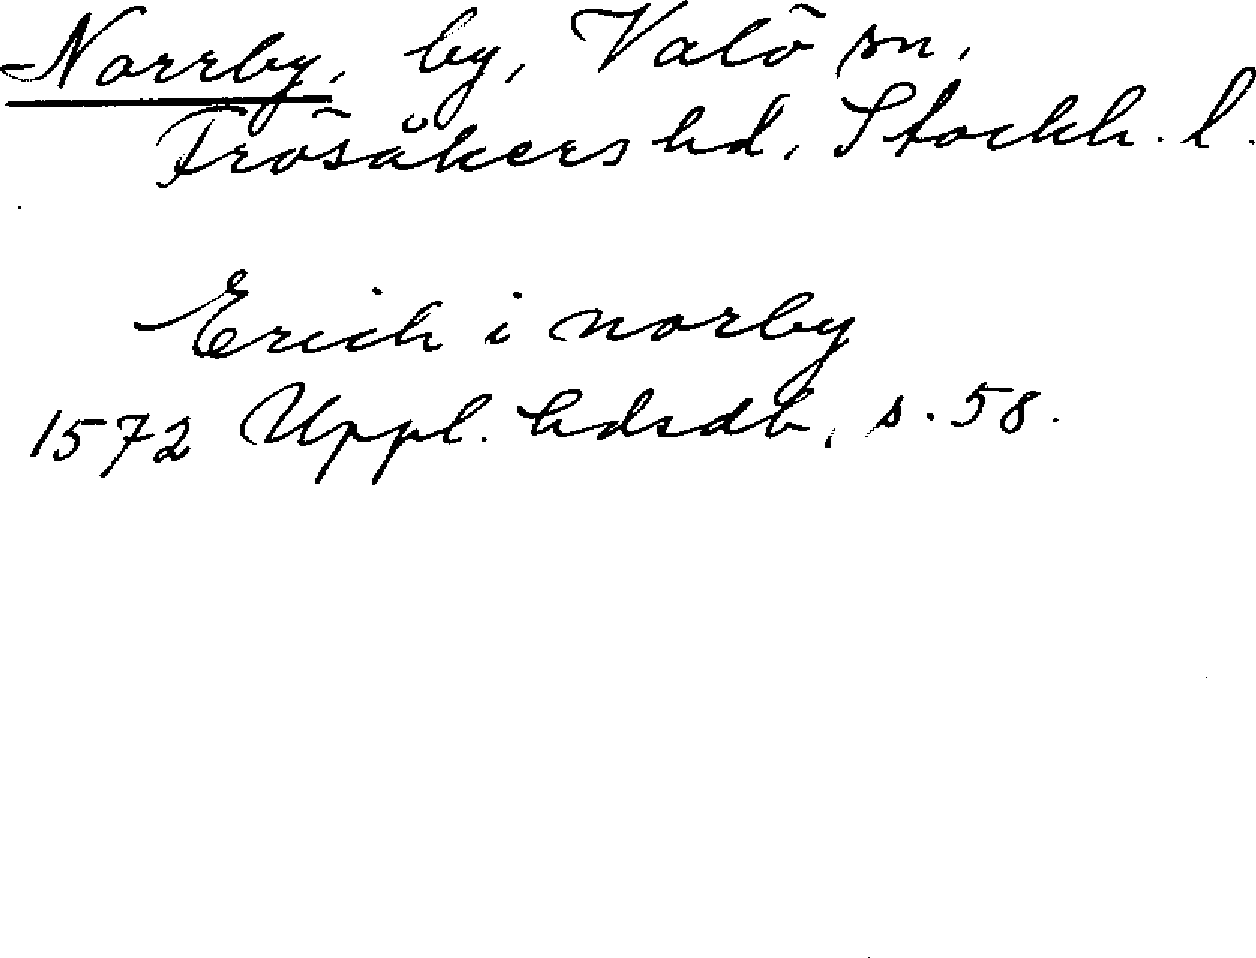 Norrby, by, Valö sn,
Frösåkers hd, Stockh. l.
Erich i norby
1572 Uppl. hdsdb, s. 58.